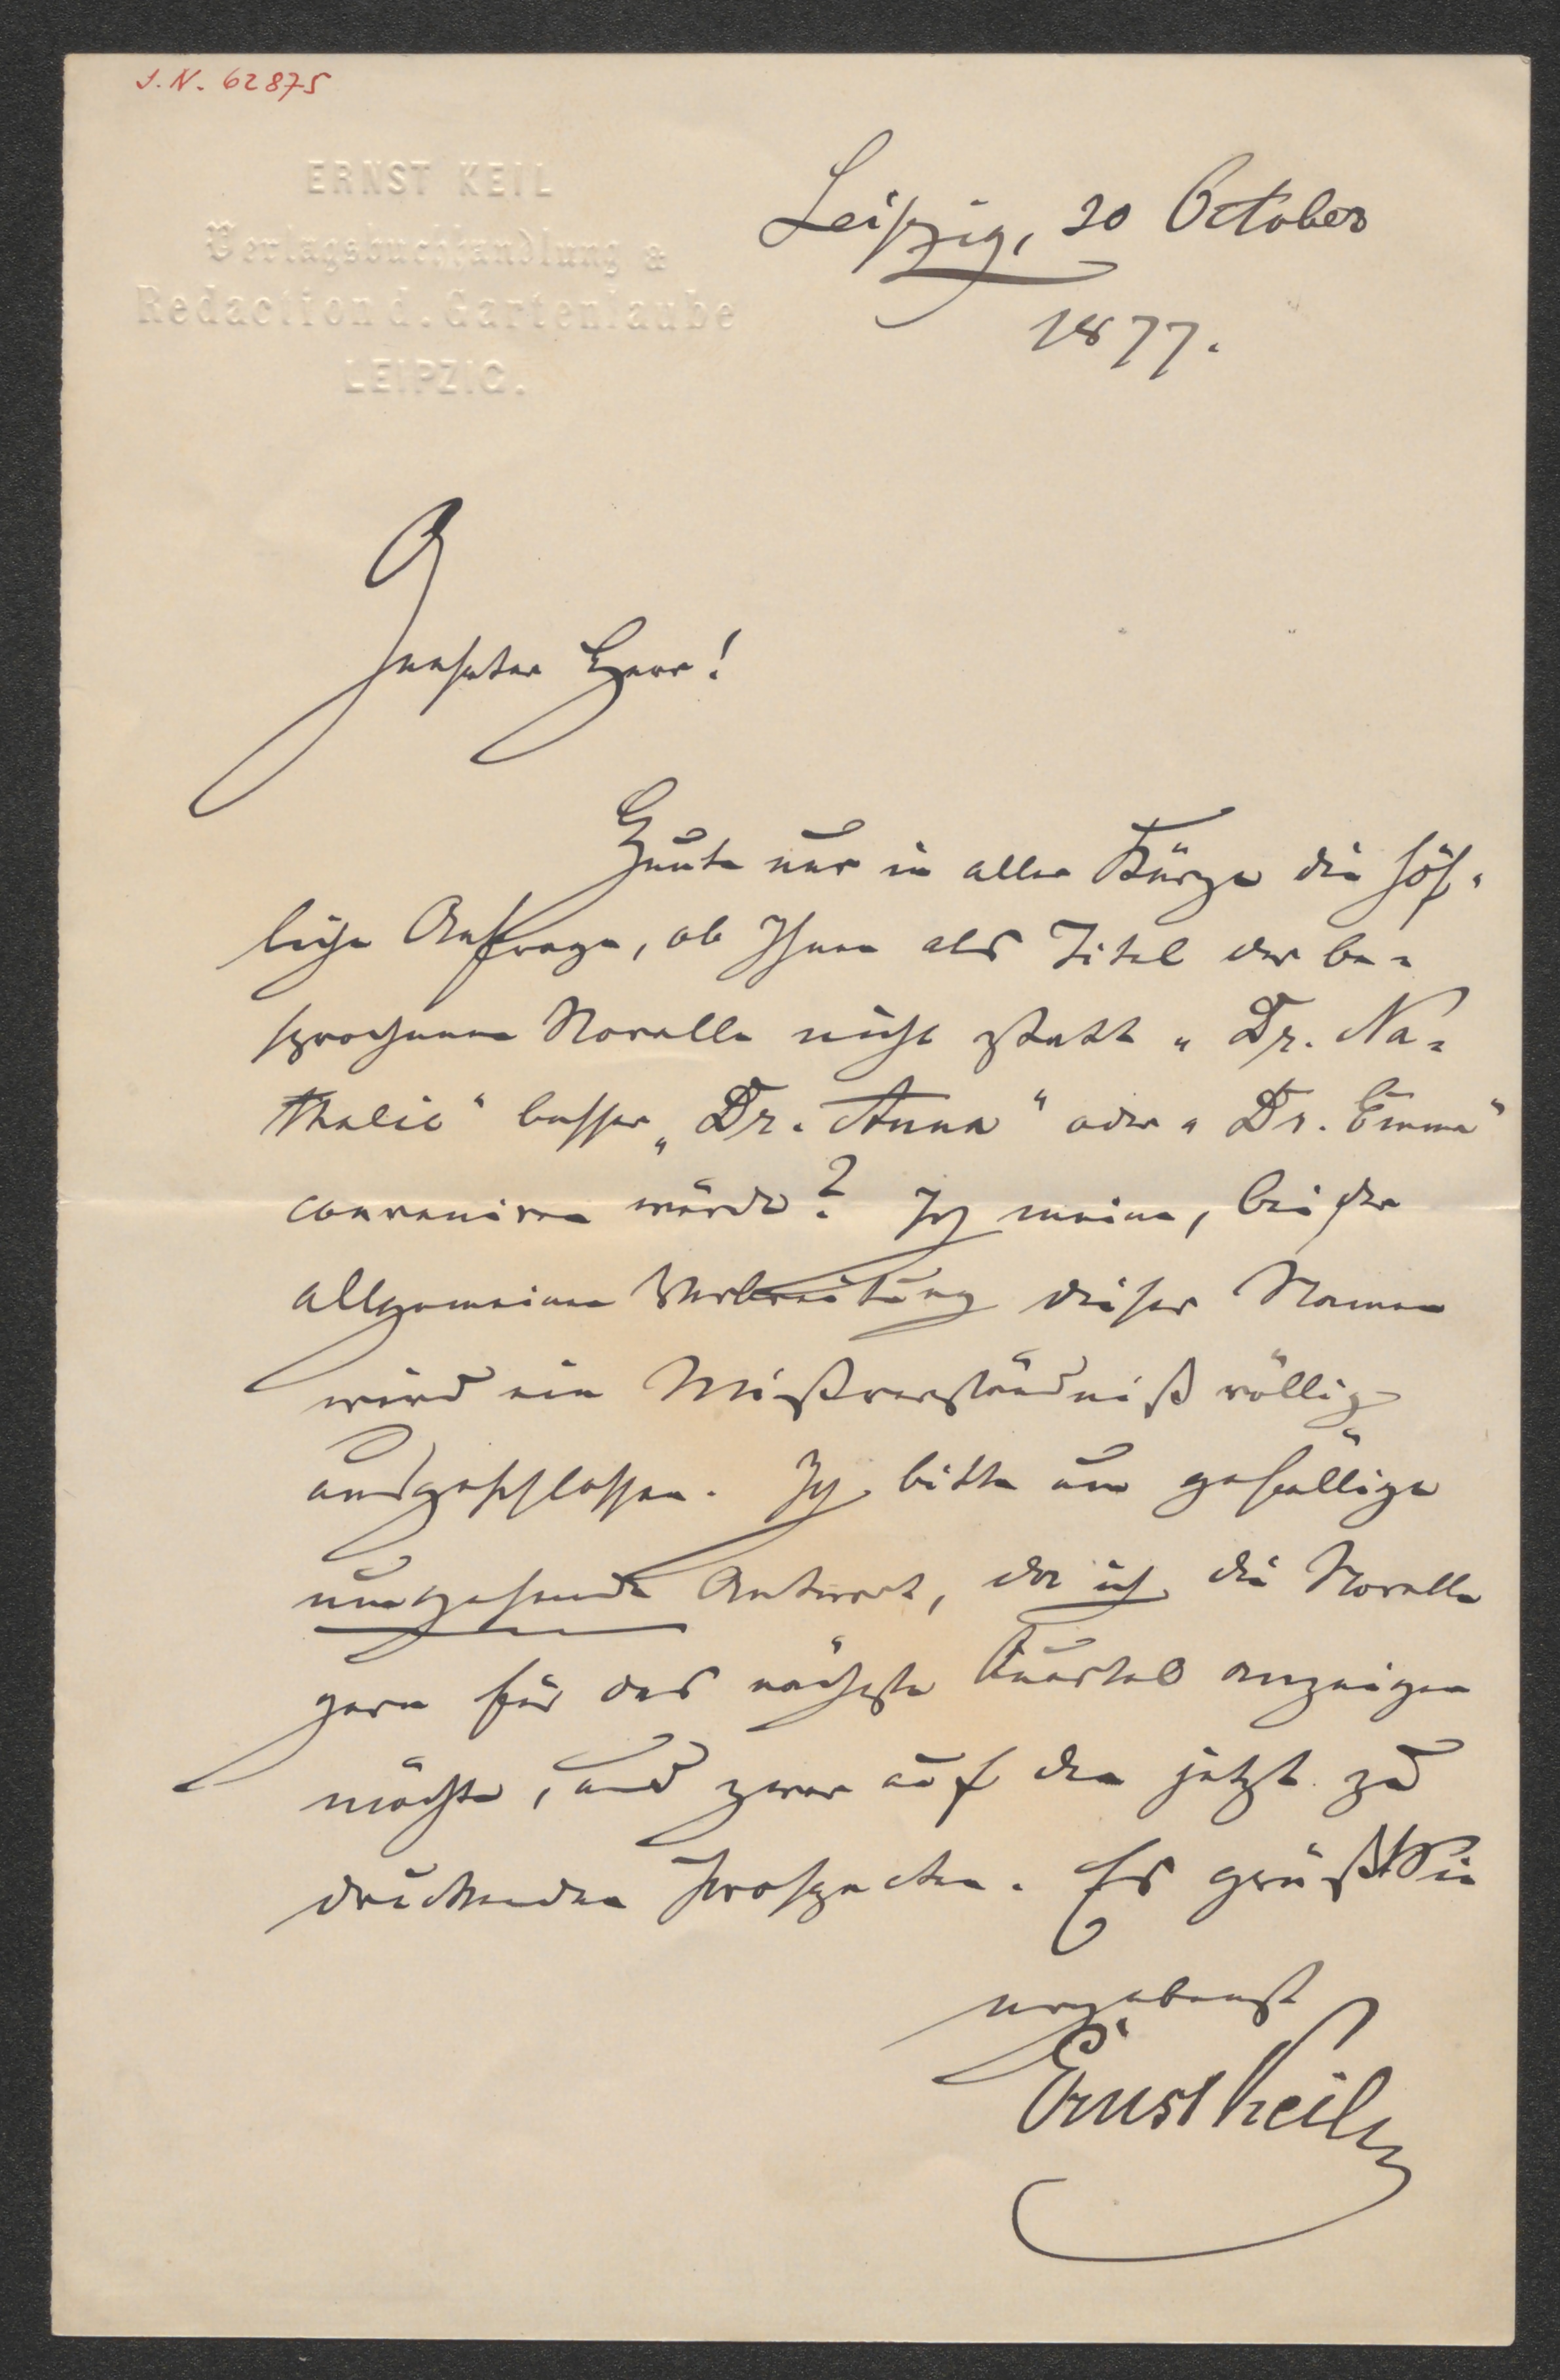 J.N. 62875
ERNST KEIL
Verlagsbuchhandlung &
Redaction d. Gartenlaube
LEIPZIG.
Leipzig, 20 October
1877.
Geehrter Herr!
Heute nur in aller Kürze die höf-
liche Anfrage, ob Ihnen als Titel der be-
sprochenen Novelle nicht statt „Dr. Na-
thalie" besser „Dr. Anna" oder „Dr. Emma"
conveniren würde? Ich meine, bei der
allgemeinen Verbreitung dieser Namen
wird ein Mißverständniß völlig
ausgeschlossen. Ich bitte um gefällige
umgehende Antwort, da ich die Novelle
gern für das nächste Quartal anzeigen
möchte, und zwar auf den jetzt zu
druckenden Prospecten. Es grüßt Sie
ergebenst
Ernst Keil